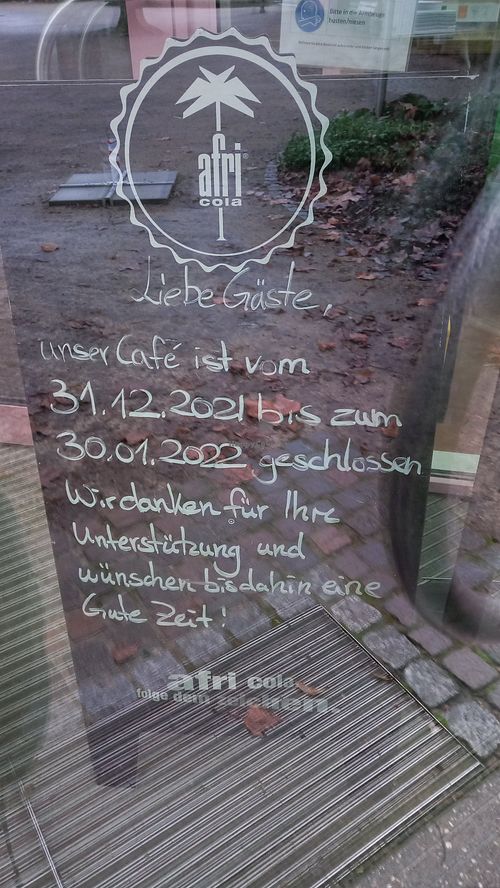 Bitte in die Armbeuge
husten/niesen
afri
cola
Liebe Gäste,
unser Café ist vom
31.12.2021 bis zum
30.01.2022 geschlossen
Wir danken für Ihre
Unterstützung und
wünschen bis dahin eine
Gute Zeit!
afri cola
folge dem zeichen.